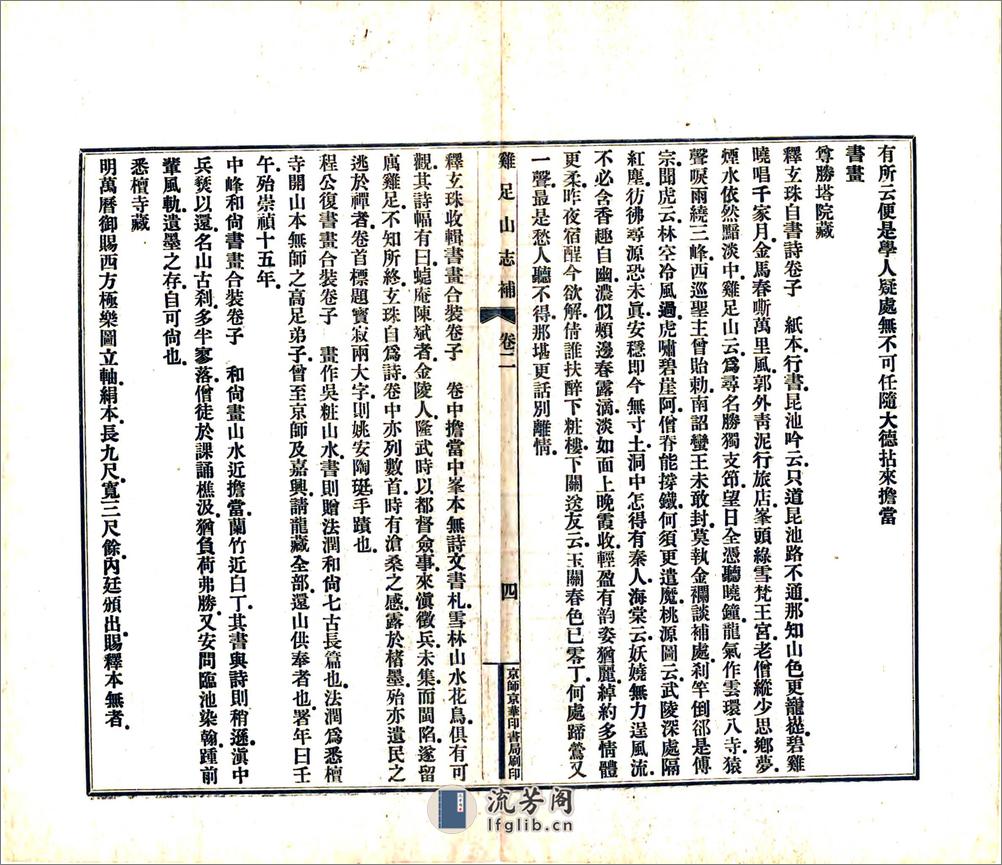 有所云便是學人疑處無不可任隨大德拈來擔當
書畫
尊勝塔院藏
釋玄珠自書詩卷子　紙本行書昆池吟云只道昆池路不通那知山色更巃嵸碧雞
曉唱千家月金馬春嘶萬里風郭外靑泥行旅店峯頭綠雪梵王宮老僧縱少思鄕夢
煙水依然黯淡中雞足山云爲尋名勝獨支筇望日全憑聽曉鐘龍氣作雲環八寺猿
聲唳雨繞三峰西巡聖主曾貽勅南詔蠻王未敢封莫執金襴談補處刹竿倒郤是傅
宗聞虎云林空冷風過虎嘯碧崖阿僧脊能撐鐵何須更遣魔桃源圖云武陵深處隔
紅塵彷彿尋源恐未眞安穩即今無寸土洞中怎得有秦人海棠云妖嬈無力逞風流
不必含香趣自幽濃似頰邊春露滴淡如面上晚霞收輕盈有韵姿猶麗綽約多情體
更柔昨夜宿酲今欲解倩誰扶醉下粧樓下關送友云玉關春色已零丁何處蹄鶯又
一聲最是愁人聽不得那堪更話別離情
雞足山志補　卷二　四　京師京華印書局刷印
釋玄珠收輯書畫合裝卷子　卷中擔當中峯本無詩文書札雪林山水花鳥俱有可
觀其詩幅有曰蛲庵陳斌者金陵人隆武時以都督僉事來愼徵兵未集而閩陷遂留
寓雞足不知所終玄珠自爲詩卷中亦列數首時有滄桑之感露於楮墨殆亦遺民之
逃於禪者卷首標題寶寂兩大字則姚安陶珽手蹟也
程公復書畫合裝卷子　畫作吳粧山水書則贈法潤和尙七古長篇也法潤爲悉檀
寺開山本無師之高足弟子曾至京師及嘉興請龍藏全部還山供奉者也署年曰壬
午殆崇禎十五年
中峰和尙書畫合裝卷子　和尙畫山水近擔當蘭竹近白丁其書與詩則稍遜滇中
兵燹以還名山古刹多半寥落僧徒於課誦樵汲猶負荷弗勝又安問臨池染翰踵前
輩風軌遺墨之存自可尙也
悉檀寺藏
明萬曆御賜西方極樂圖立軸絹本長九尺寬三尺餘內廷頒出賜釋本無者
流芳阁
lfglib.cn